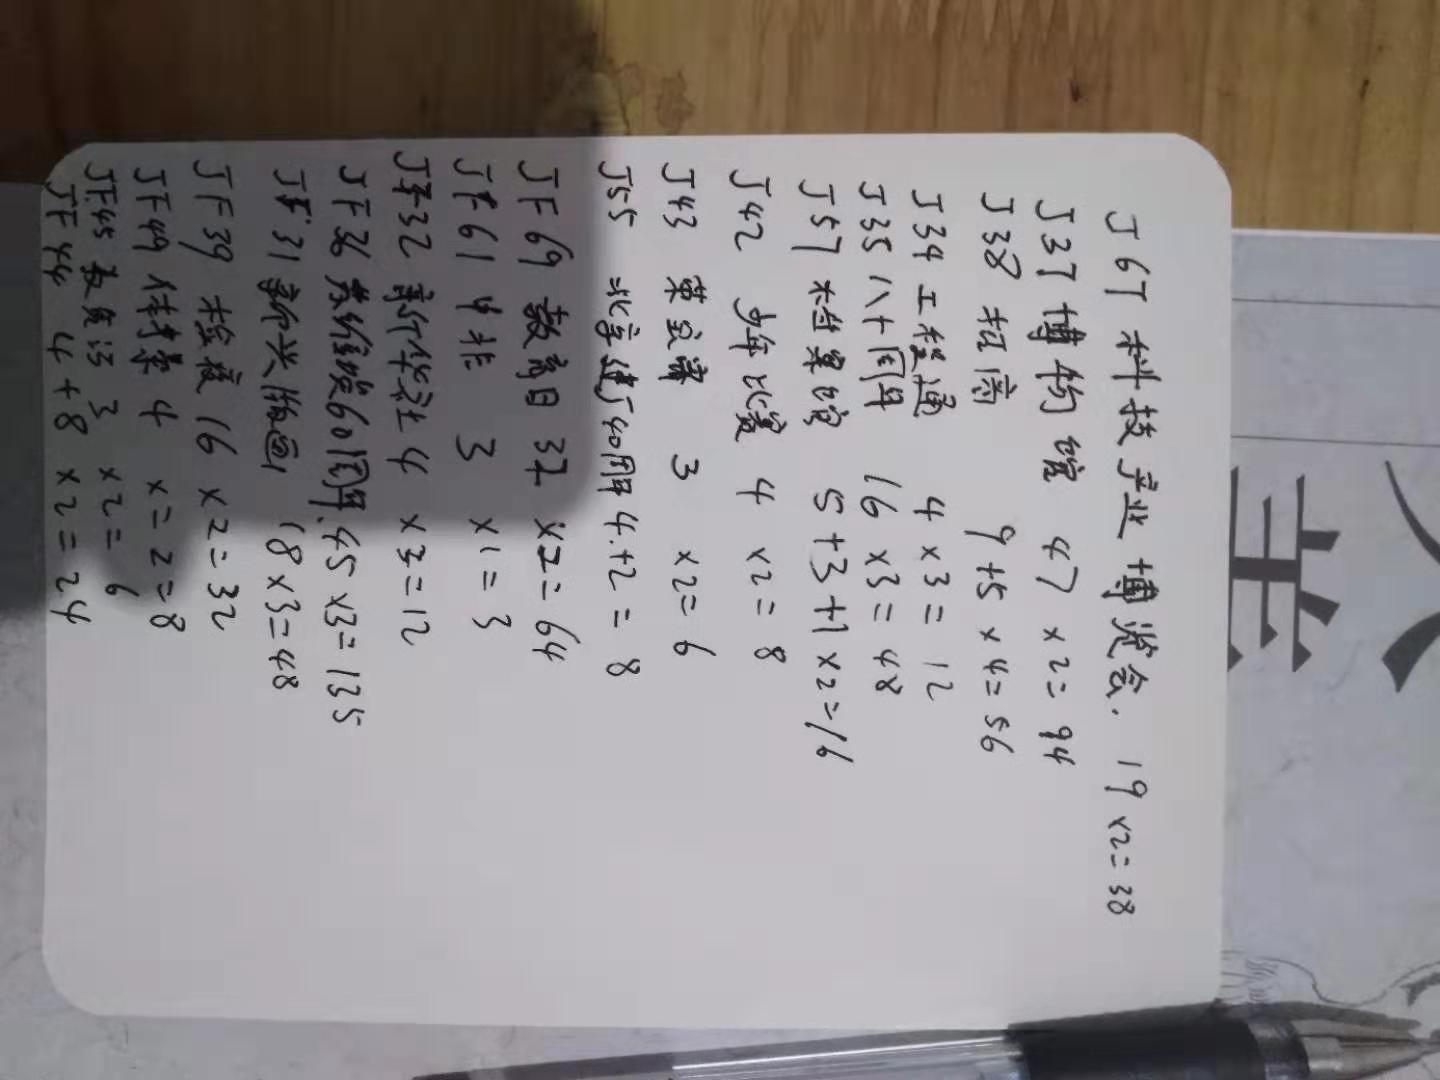 J67 科技产业博览会. 19 ×2=38
J37 博物馆 47 ×2=94
J38 招商 9+5 ×4=56
J34 工程通 4×3=12
J35 八十周年 16×3=48
J57 档案馆 5+3+1×2=16
J42 少年比赛 4 ×2=8
J43 3 ×2=6
J55 北京建厂40周年 4+2=8
JF69 教育日 32 ×2=64
JF61 中非 3 ×1=3
JF32 新华社 4 ×3=12
JF36 60周年 45×3=135
JF31 新兴版画 18×3=48
JF39 检疫 16 ×2=32
JF49 4 ×2=8
JF45 3 ×2=6
JF44 4+8 ×2=24